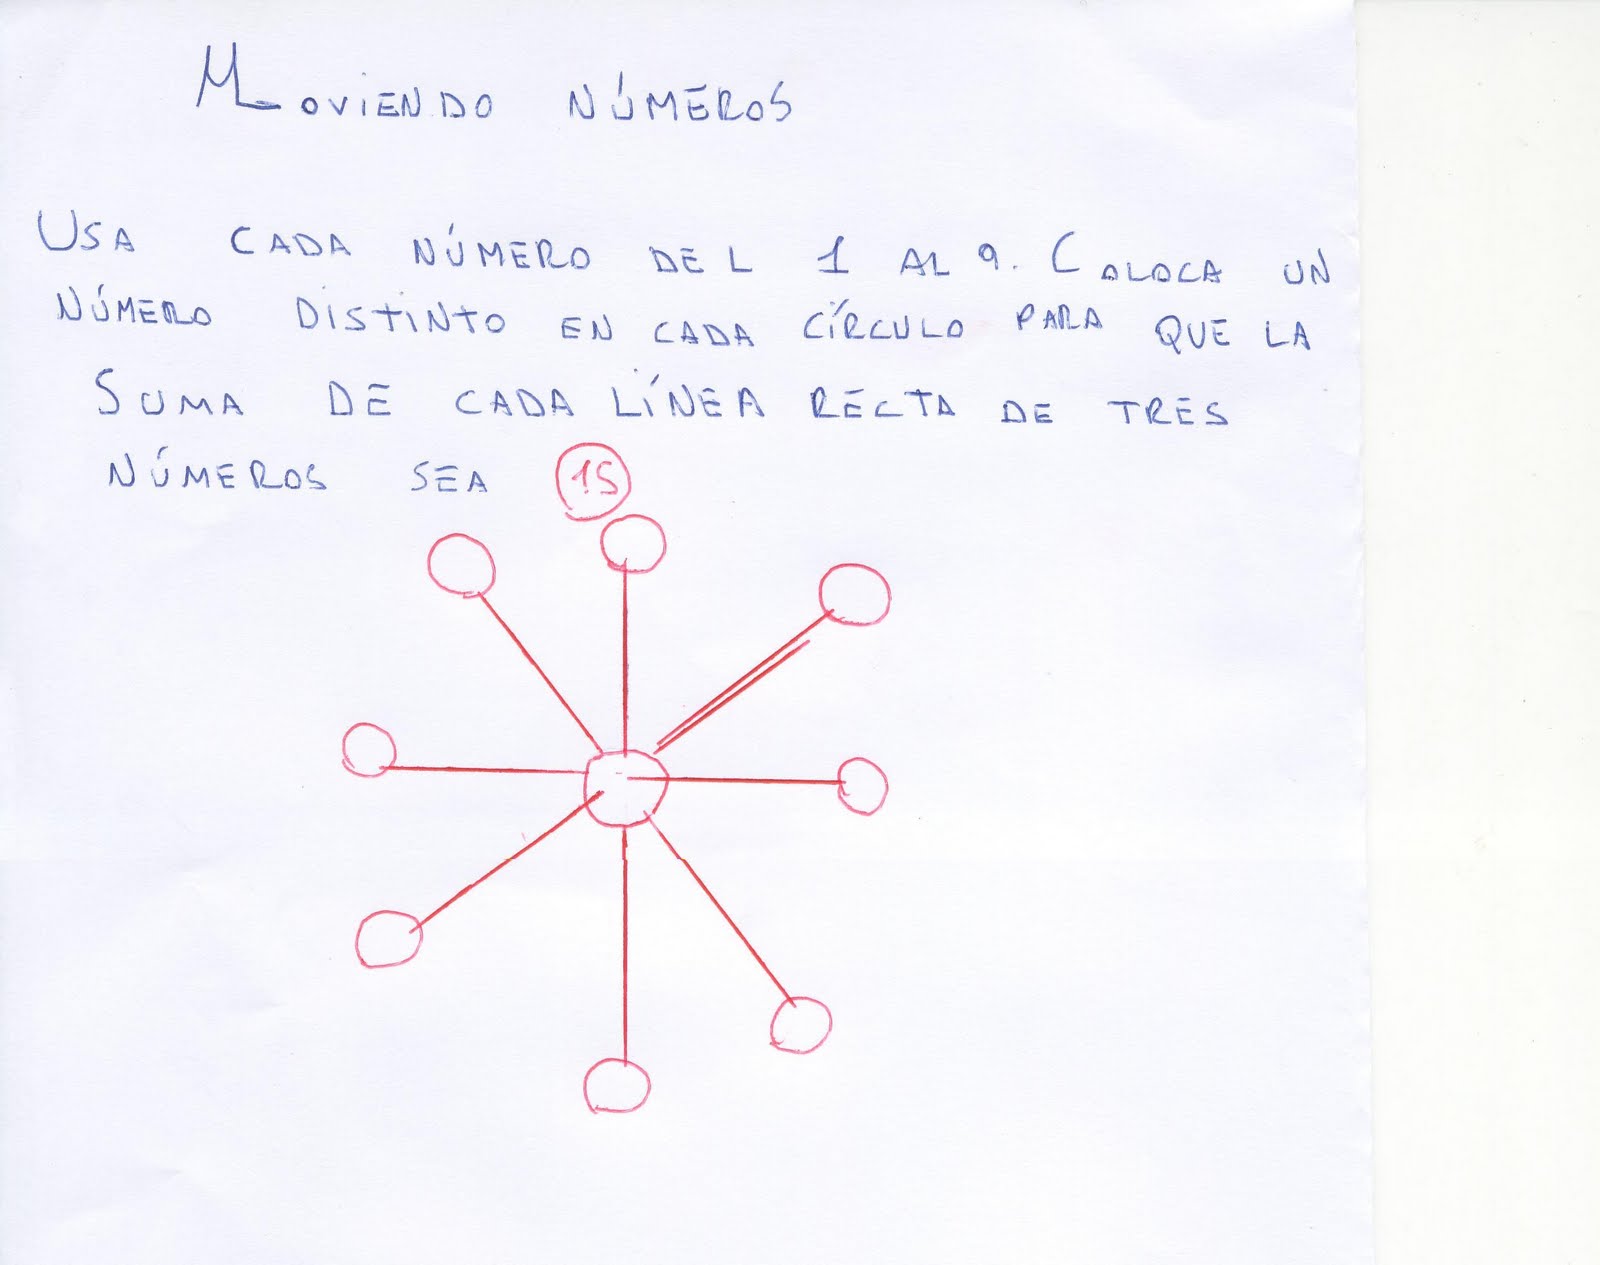 MOVIENDO NÚMEROS
USA CADA NÚMERO DEL 1 AL 9. COLOCA UN
NÚMERO DISTINTO EN CADA CÍRCULO PARA QUE LA
SUMA DE CADA LÍNEA RECTA DE TRES
NÚMEROS SEA 15